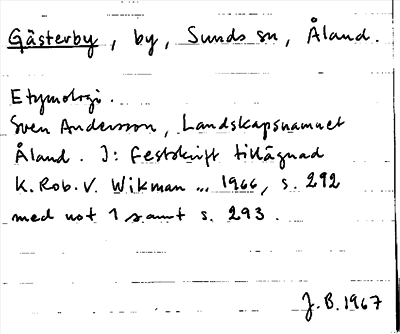 Gästerby, by, Sunds sn, Åland.
Etymologi.
Sven Andersson, Landskapsnamnet
Åland. I: Festskrift tillägnad
K. Rob. V. Wikman ... 1966, s. 292
med not 1 samt s. 293.
J. B. 1967